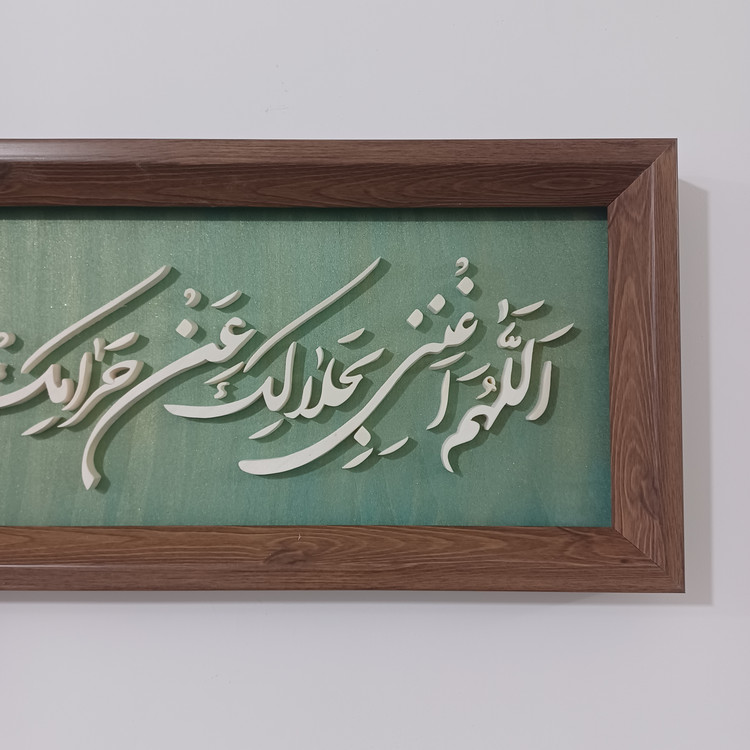 اَللّٰهُمَّ اَغْنِنِی بِحَلَالِكَ عَنْ حَرَامِكَ